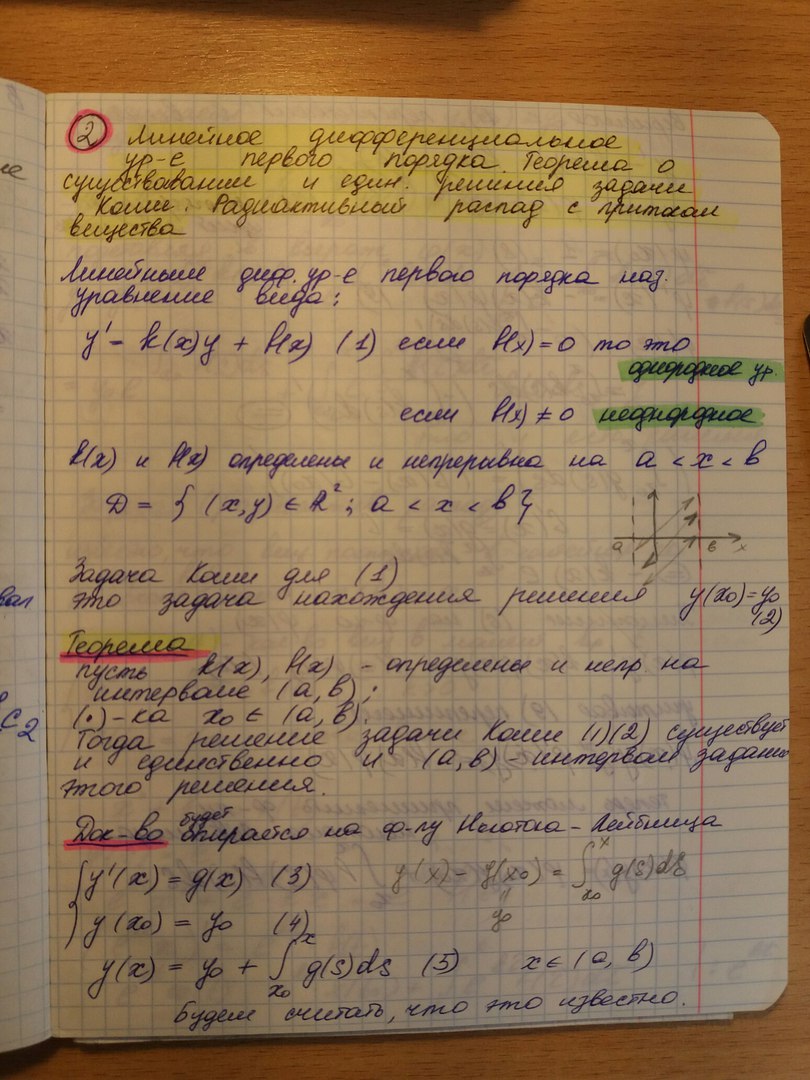 ② Линейное дифференциальное
ур-е первого порядка. Теорема о
существовании и един. решения задачи
Коши. Радиактивный распад с притокам
вещества
Линейным диф. ур-е первого порядка наз.
уравнение вида:
y' = k(x)y + f(x) (1) если f(x) = 0 то это
однородное ур.
если f(x) ≠ 0 неоднородное
k(x) и f(x) определены и непрерывна на a < x < b
D = { (x,y) ∈ R²; a < x < b}
a b x
Задача Коши для (1)
это задача нахождения решения y(x₀)=y₀
(2)
Теорема
пусть k(x), f(x) - определены и непр на
интервале (a,b);
(•)-ка x₀ ∈ (a,b).
Тогда решение задачи Коши (1)(2) существует
и единственно и (a,b) - интервал задания
этого решения.
Док-во будет опирается на ф-лу Ньютона-Лейбница
{ y'(x) = g(x) (3) y(x) - y(x₀) = ∫ₓ₀ˣ g(s)ds
y(x₀) = y₀ (4) y₀
y(x) = y₀ + ∫ₓ₀ˣ g(s)ds (5) x ∈ (a, b)
Будем считать, что это известно.
C₂